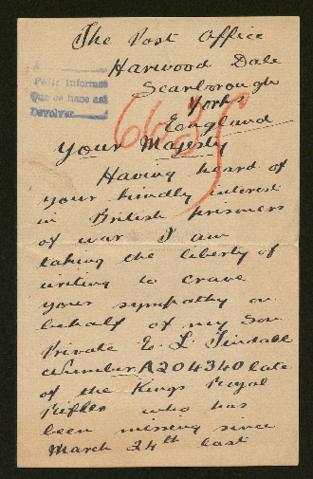 The Post Office
Harwood Dale
Scarborough
Yorks
England
A
Pedir informes
Que se hace así
Devolver
6635
Your Majesty
Having heard of
your kindly interest
in British prisoners
of war I am
taking the liberty of
writing to crave
your sympathy on
behalf of my son
Private E. L. Tindall
Number A204340 late
of the Kings Royal
Rifles who has
been missing since
March 24th last